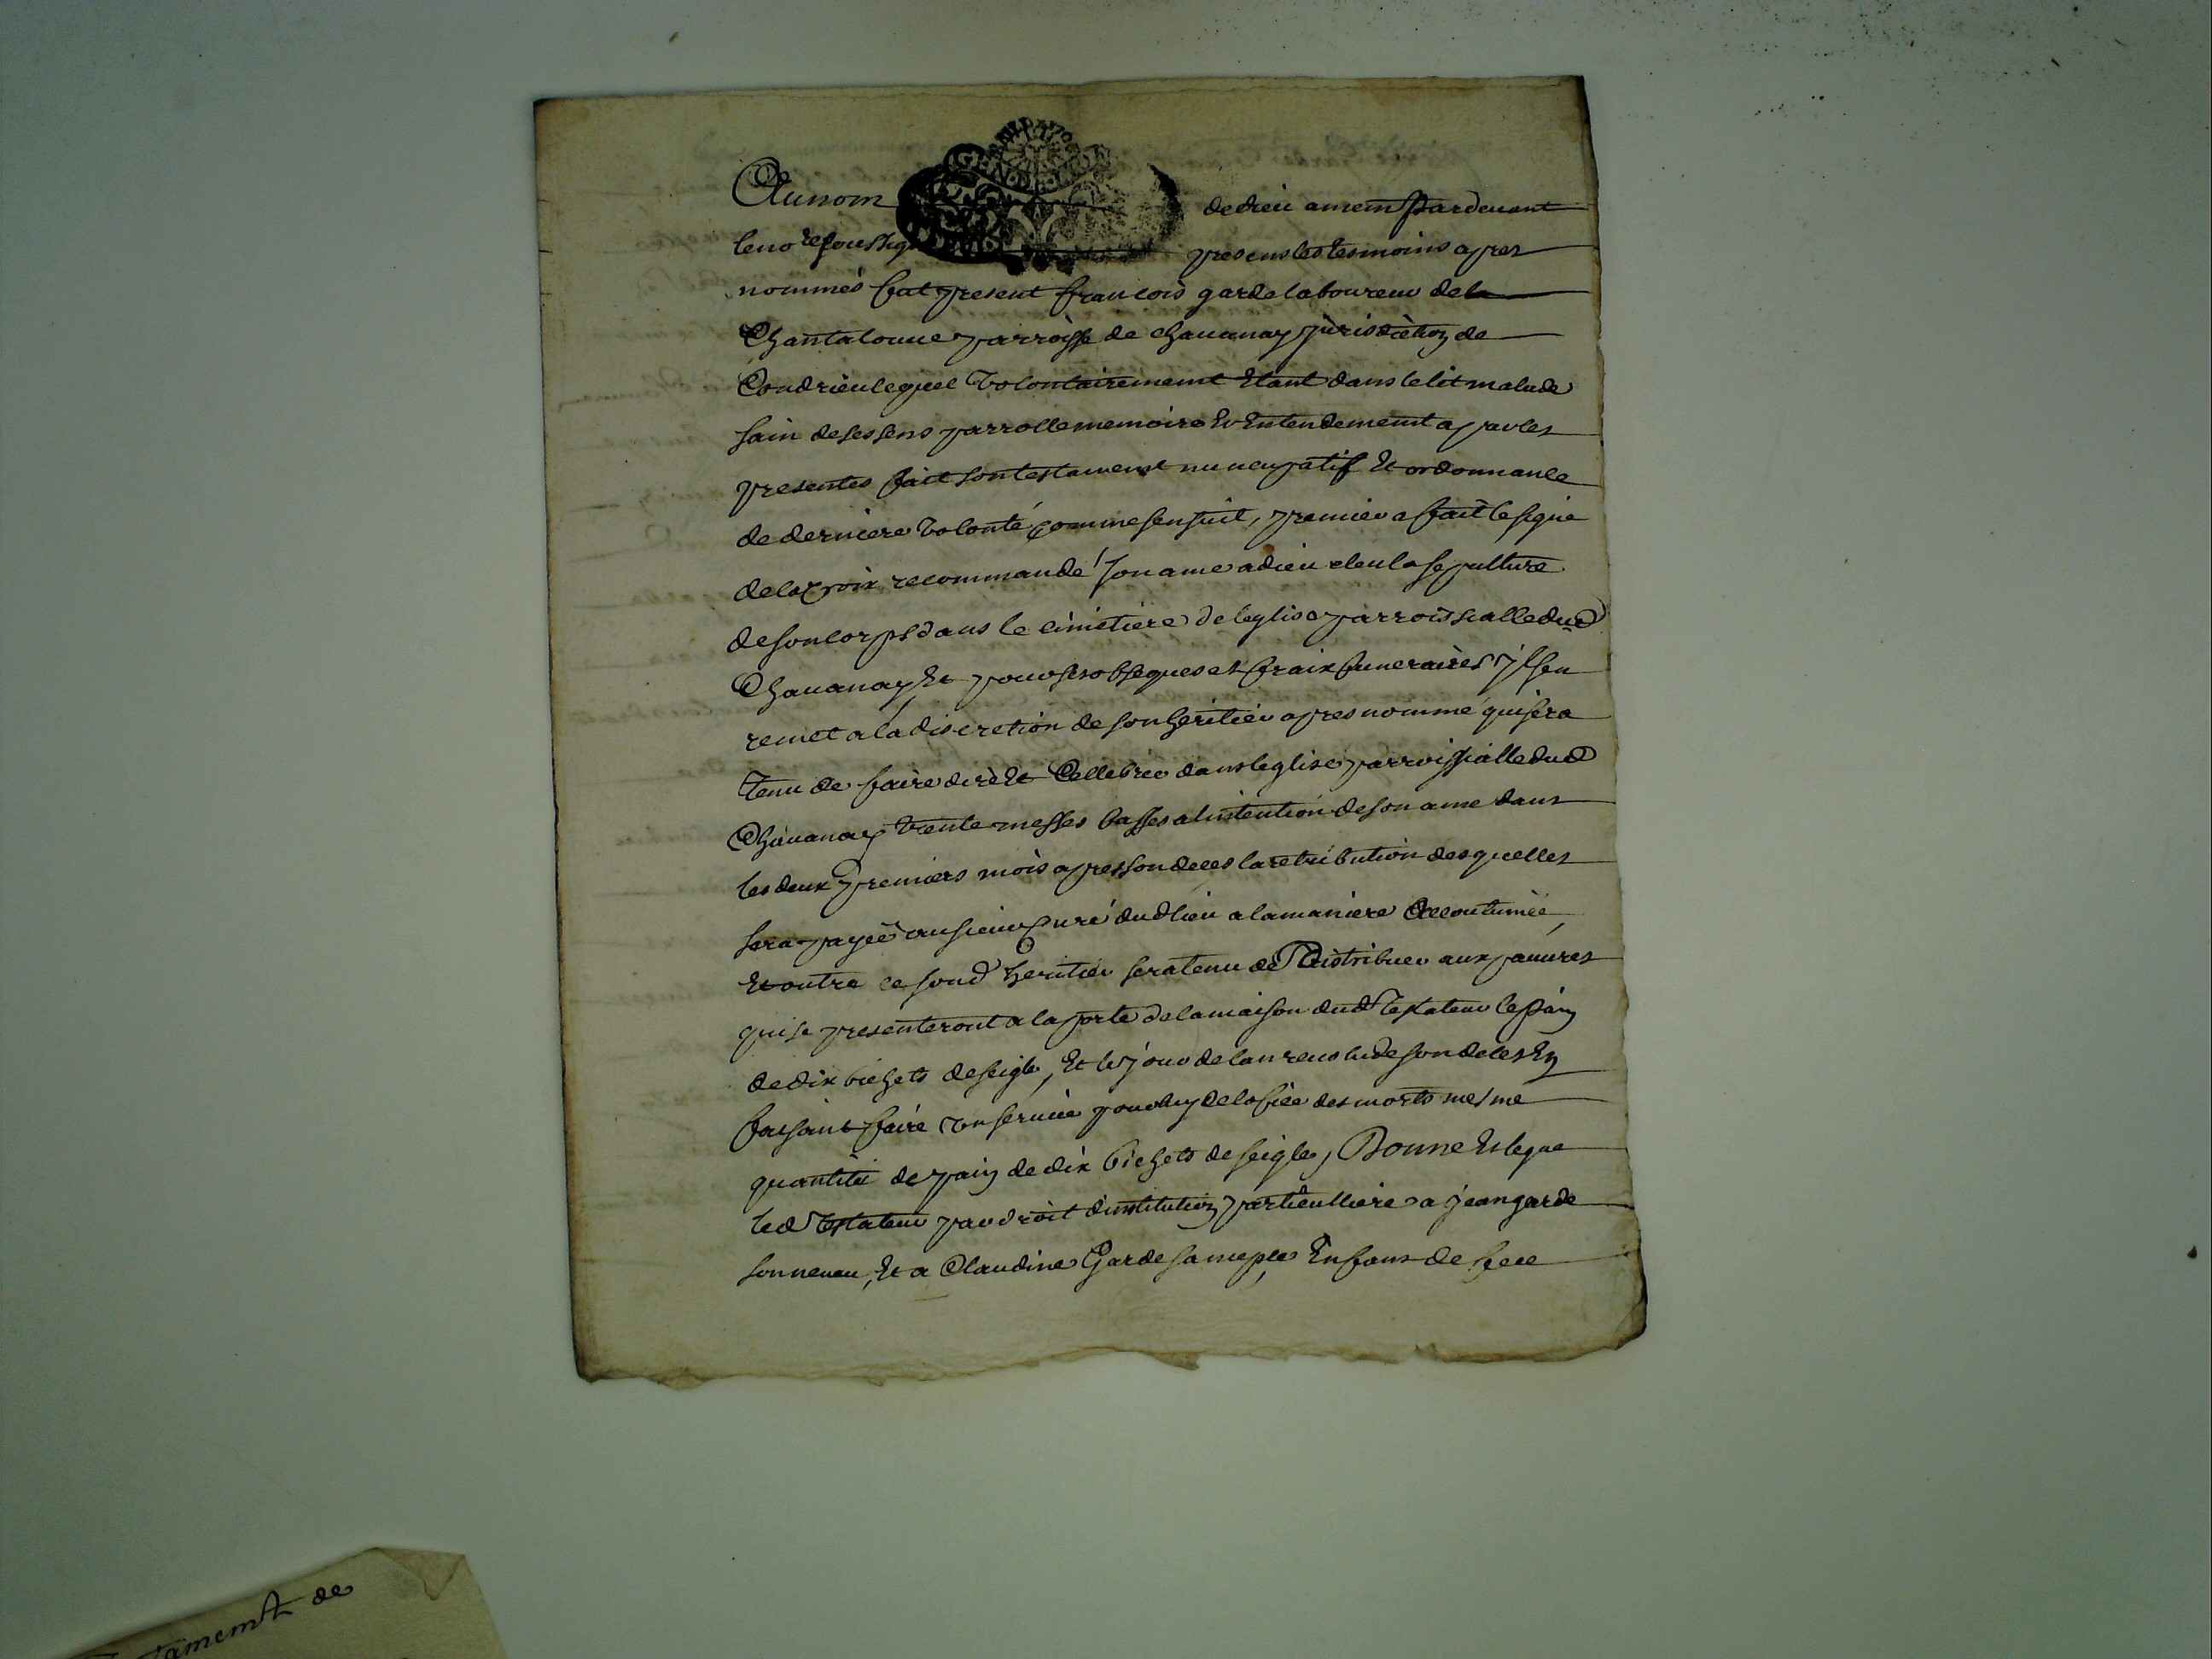 Au nom de dieu amem Pardevant
le no.re soussig presens les tesmoins apres
nommés fut present francois garde laboureur de la
Chantalouue parroisse de chauanay jurisdiction de
Condrieu lequel volontairement Etant dans le lit malade
sain de ses sens parrolle memoire Et Entendement a par les
presentes fait son testament nuncupatif Et ordonnance
de derniere volonté comme sensuit, premier a fait le signe
de la croix recommandé son ame a dieu eleu la sepulture
de son corps dans le cimetiere de leglise parroissialle dud
Chauanay, Et pour ses obseques et fraix funeraires jl sen
remet a la discretion de son heritier apres nommé qui sera
tenu de faire dire Et Cellebrer dans leglise parroissialle dud
Chauanay trente messes basses a lintention de son ame dans
les deux premiers mois apres son deces la retribution desquelles
sera payée au sieur Curé dud lieu a la maniere Accoutumée,
Et outre ce sond heritier sera tenu de Distribuer aux pauures
qui se presenteront a la porte de la maison dud testateur le pain
de dix bichets de seigle, Et le jour de lan reuolu de son deces En
faisant faire un seruice pour luy de loffice des morts mesme
quantité de pain de dix bichets de seigle, Donne Et legue
led testateur par droit dinstitution particulliere a jean garde
son neueu, Et a Claudine Garde sa niepce Enfans de feu
tamemt de